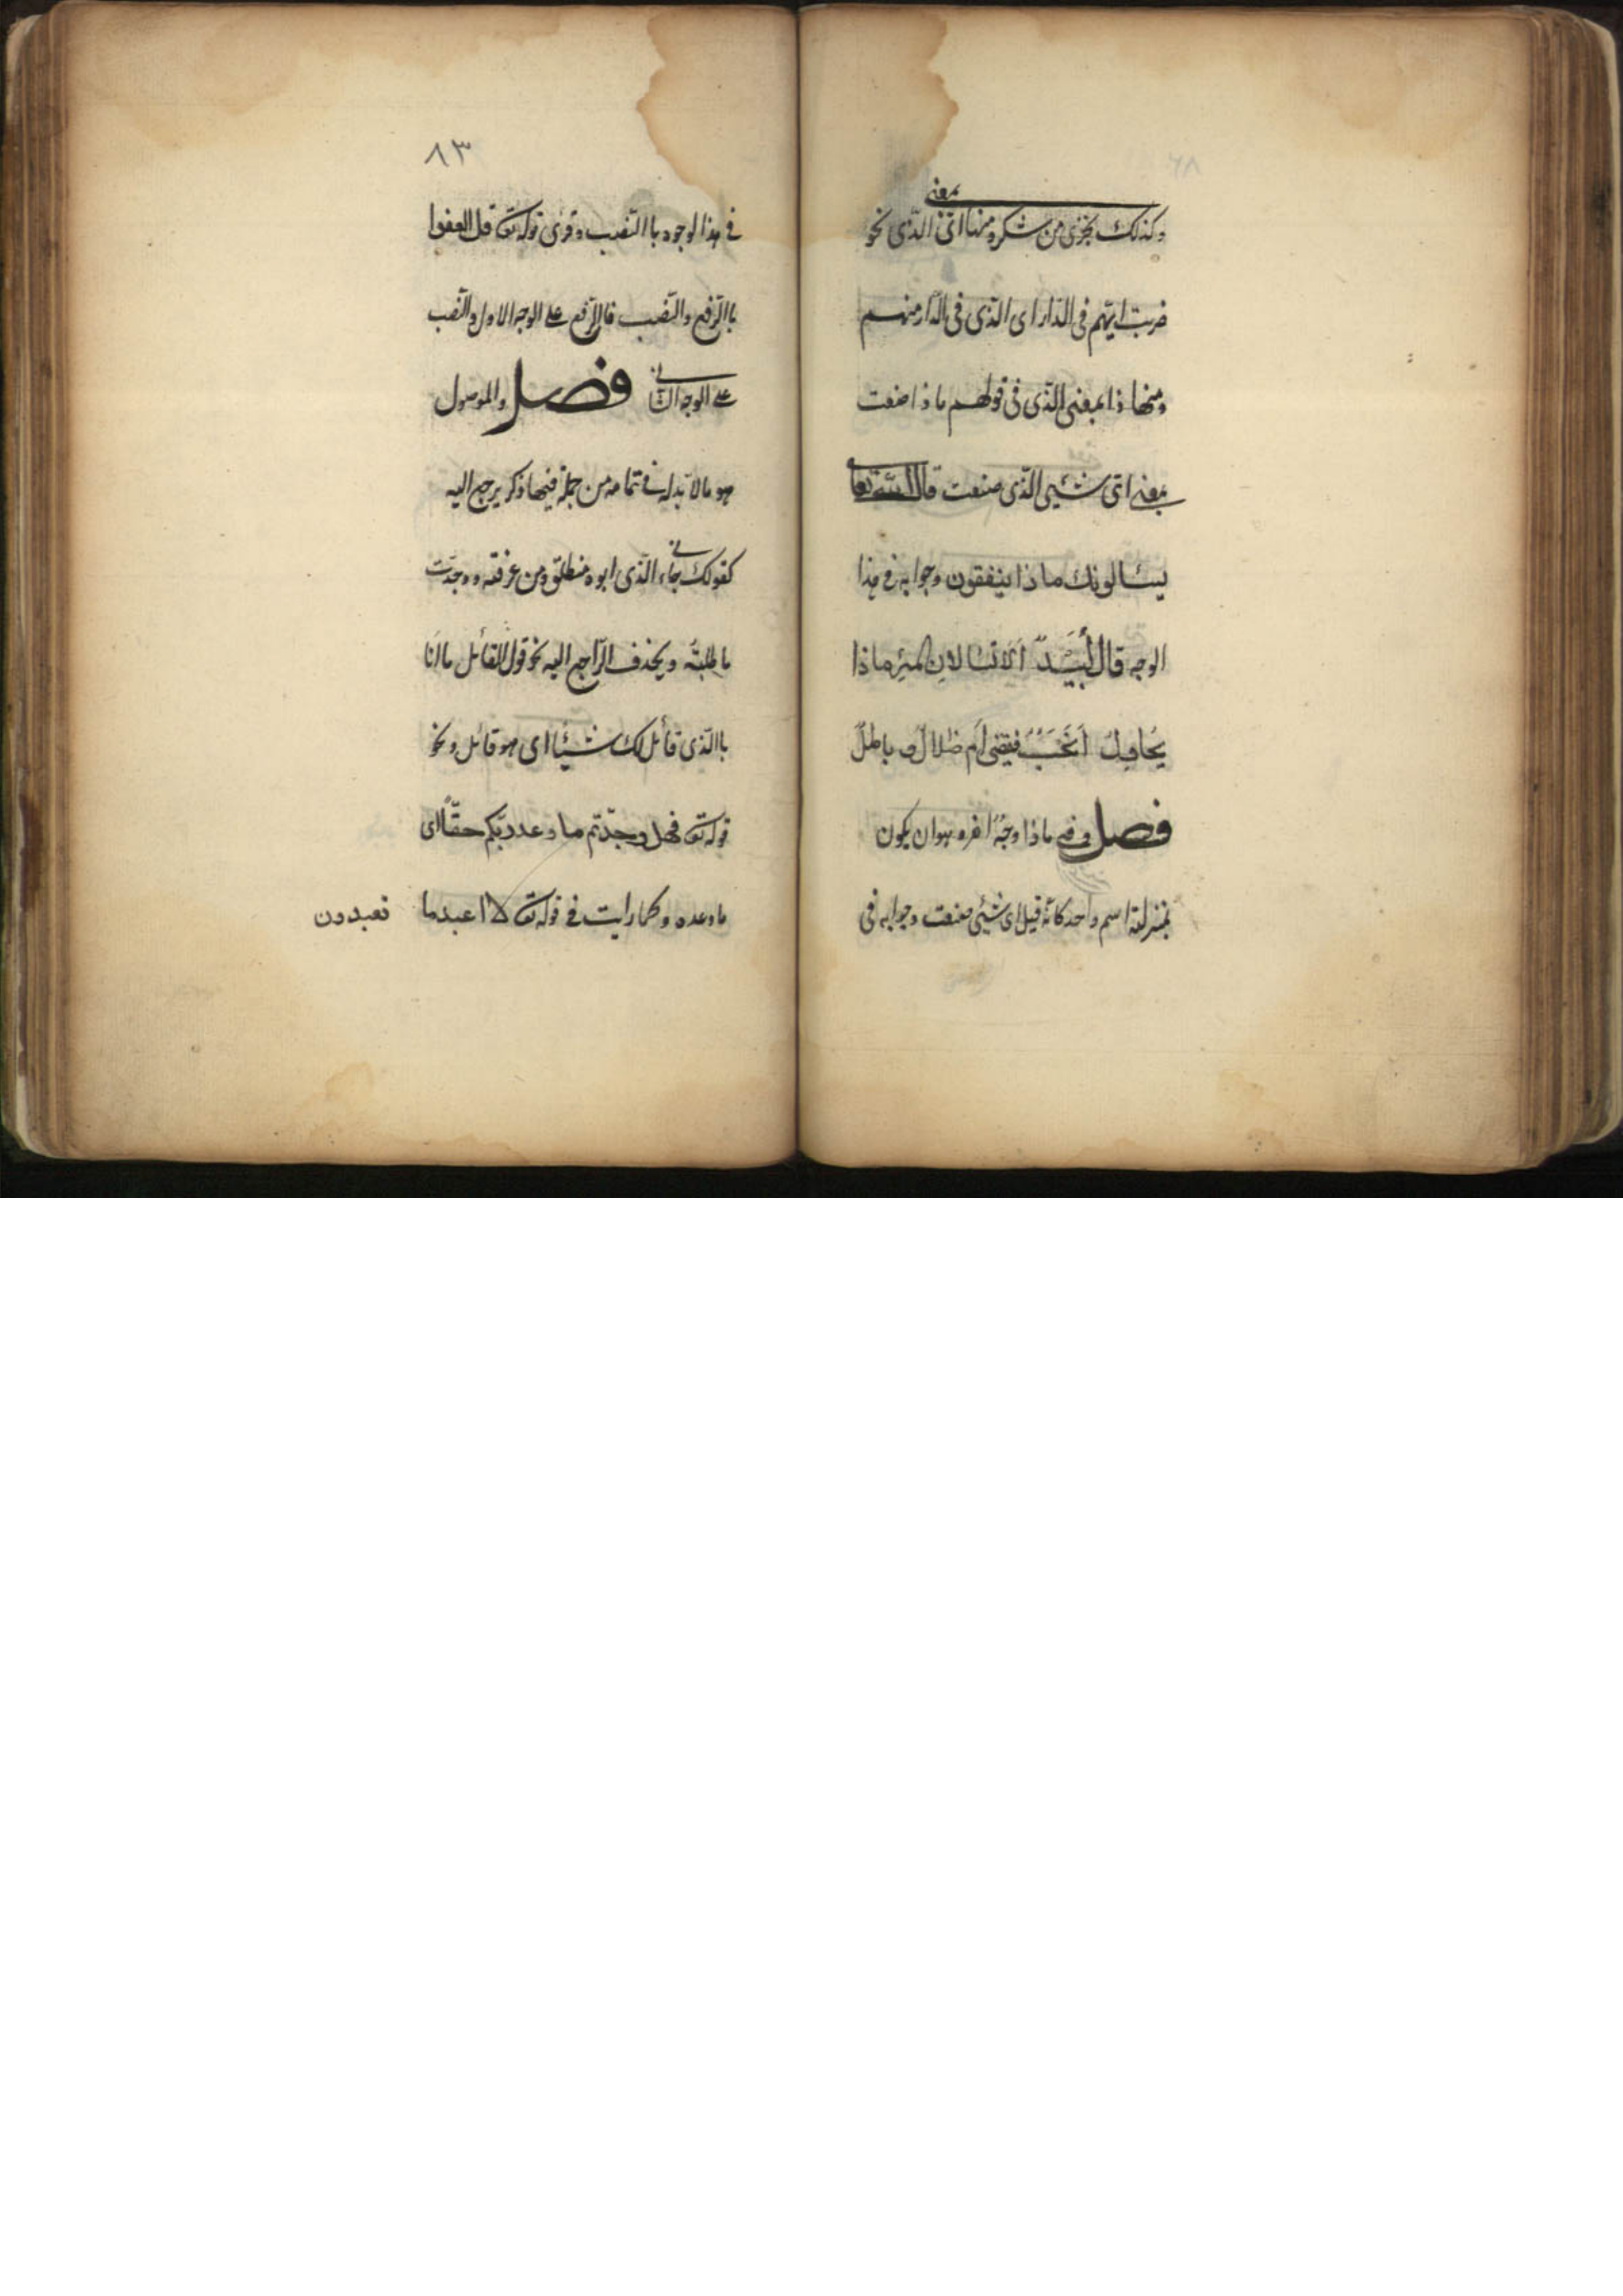 وكذلك نجزى من شكر ومنها اىّ بمعنى الّذى نحو
ضربت ايّهم فى الدّار اى الّذى فى الدّار منهم
ومنها ذا بمعنى الّذى فى قولهم ما ذا صنعت
بمعنى اىّ شئى الّذى صنعت قال الله تعا
يسئالونك ماذا ينفقون وجوابه فى هذا
الوجه قال لَبِيْد اَلَا تسالان المرء ماذا
يُحاوِلُ اَنَحْبٌ فيقضى اَم ضلالٌ و باطلٌ
فصل وفى ماذا وجهٌ اخر وهو ان يكون
بمنزلة اسم واحد كانّه قيل اى شئى صنعت وجوابه فى
٨٣
فى هذا الوجود باالنّصب وقرئ قوله تع قل العفوا
باالرّفع والنّصب فاالرّفع على الوجه الاول والنّصب
على الوجه الثانى فصل والموصول
هو مالا بدله فى تمامه من جملة فيها ذكر يرجع اليه
كقولك جاءنى الّذى ابوه منطلق ومن عرفته ووجدّت
ما طلبتُه ويحذف الرّاجع اليه نحو قول القائل ما انا
باالّذى قائل لك شيئا اى هو قائل ونحو
قوله تع فهل وجدّتم ما وعد ربّكم حقّاً اى
ما وعده وكما رايت فى قوله تع لا اعبد ما
تعبدون